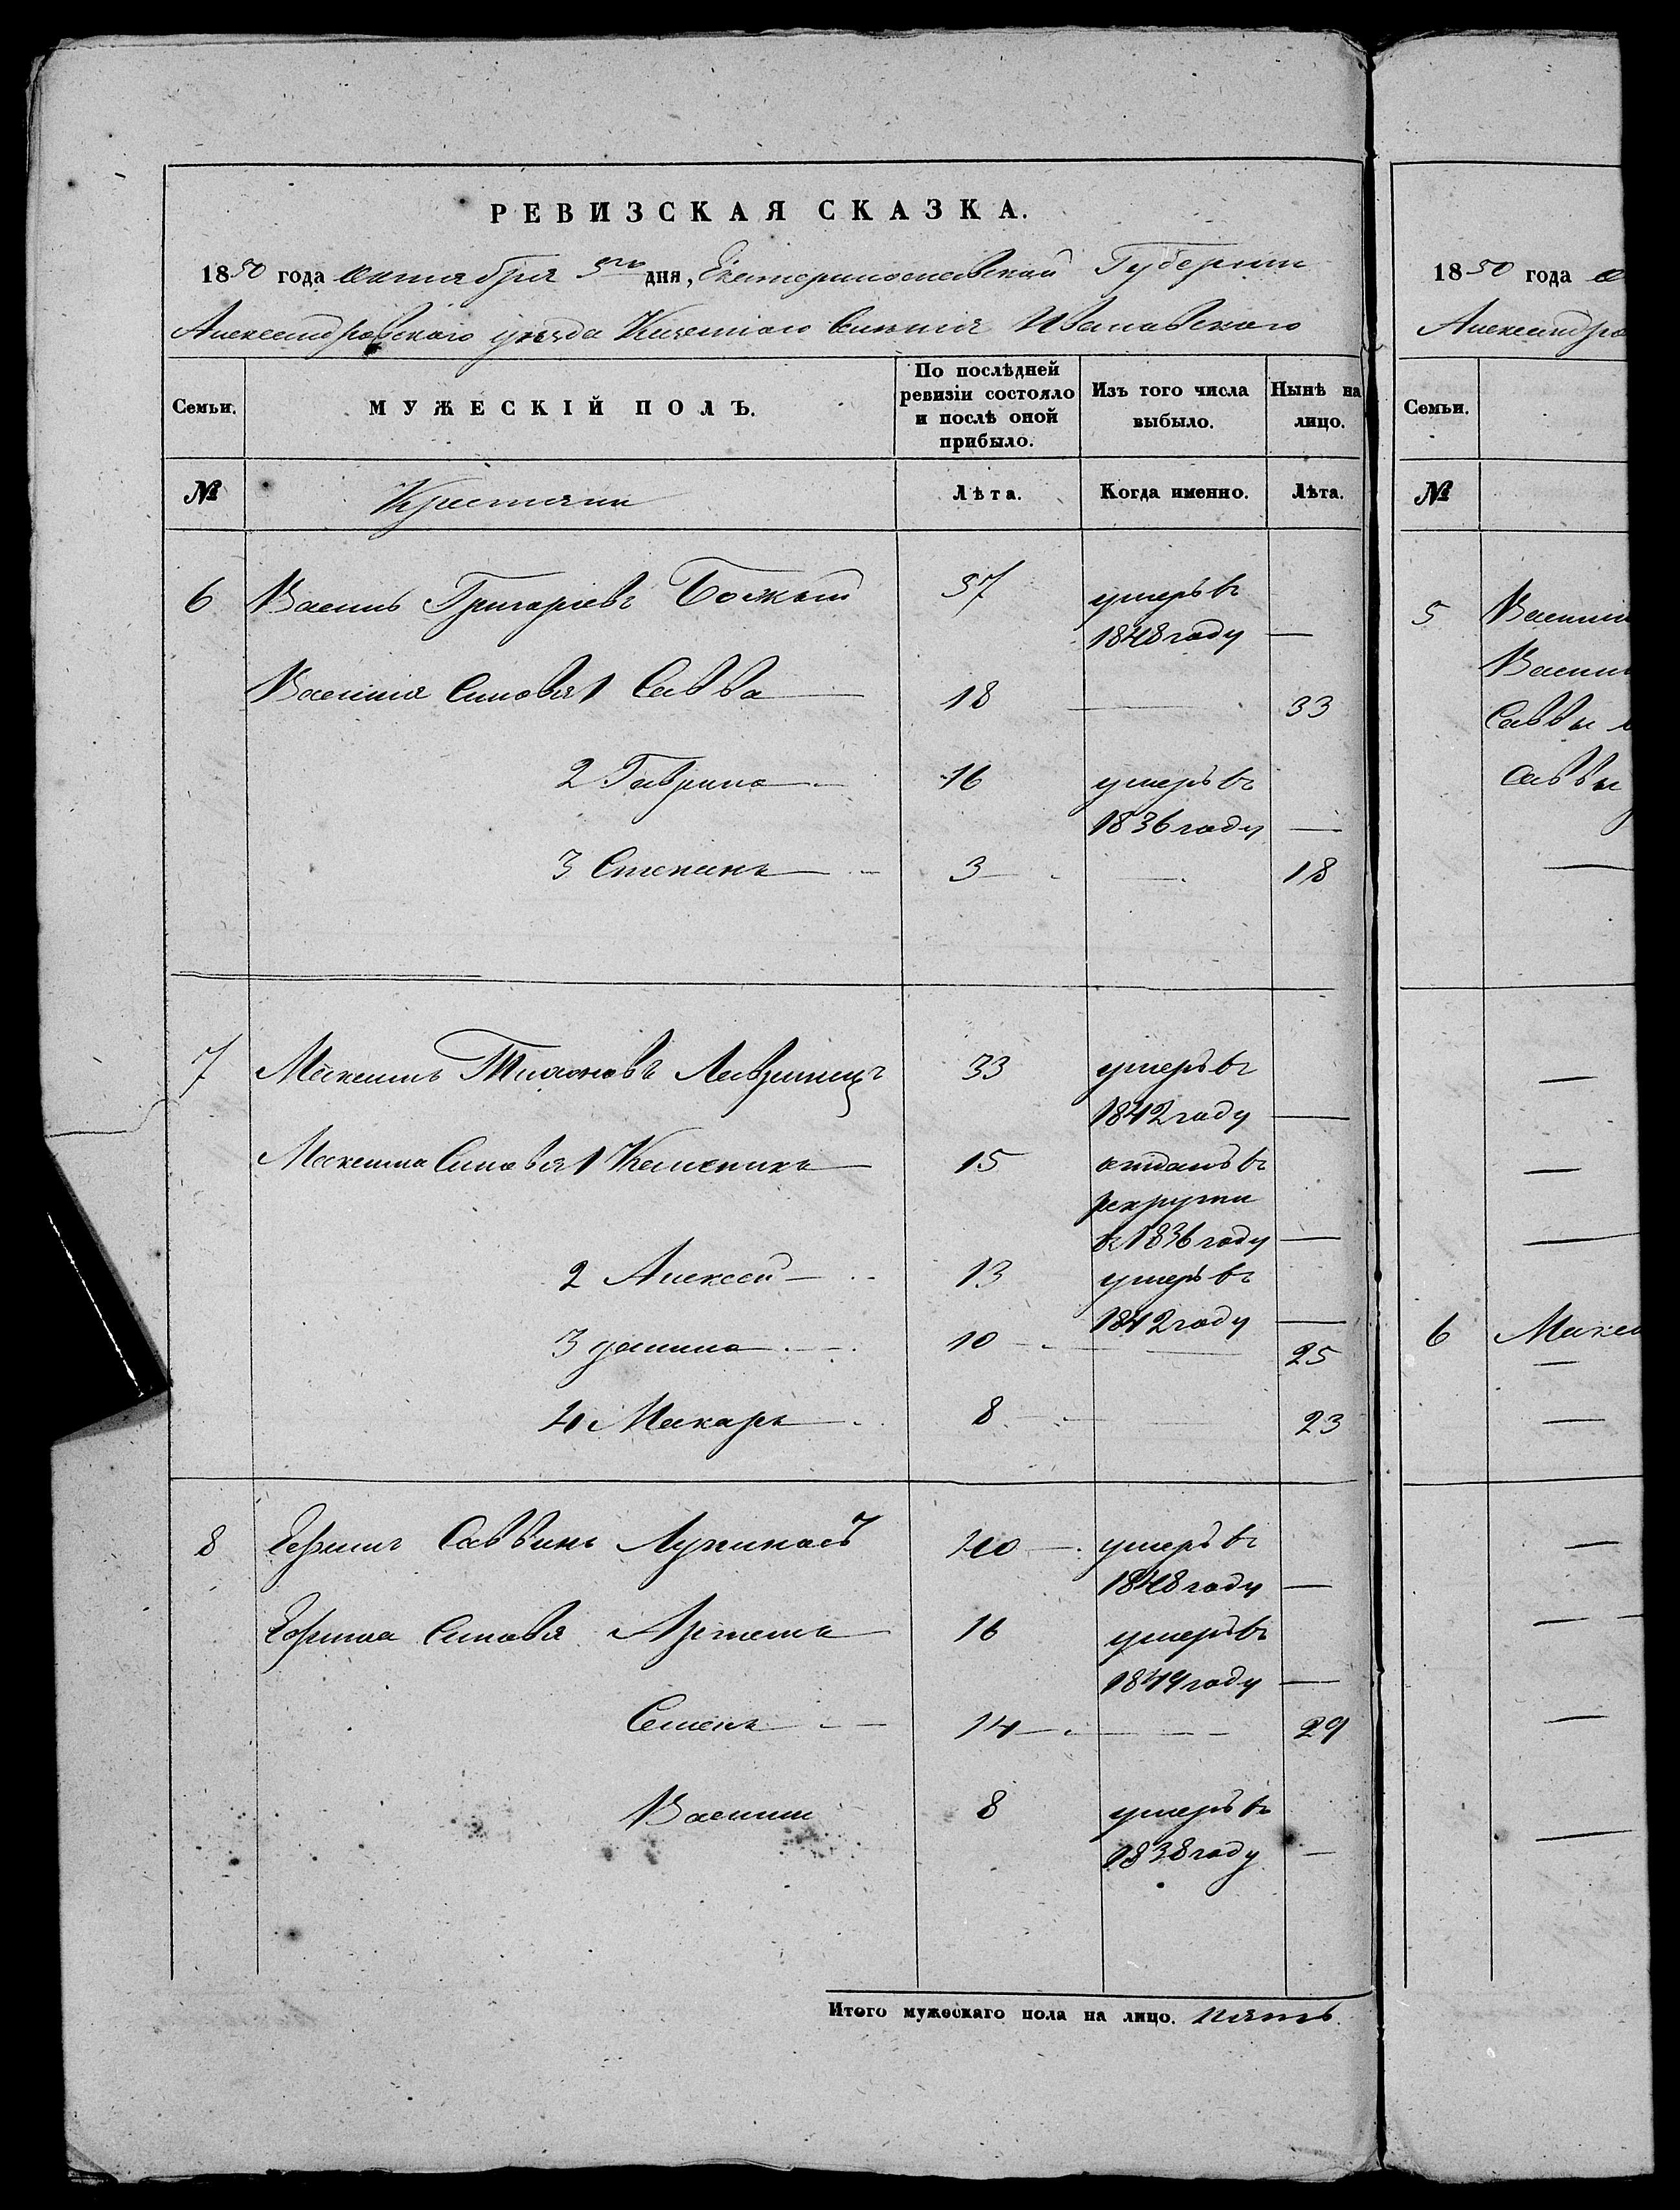 РЕВИЗСКАЯ СКАЗКА.
1850 года октября 5го дня, Екатеринославской Губернии
Александровского уезда Ивановского
Семьи. МУЖЕСКІЙ ПОЛЪ. По послѣдней ревизіи состояло и послѣ оной прибыло. Изъ того числа выбыло. Нынѣ на лицо.
№ Крестяни Лѣта. Когда именно. Лѣта.
6 Василь Григорїевъ Божый 57 умеръ въ
1848 году —
Василїя Синовя 1 Савва 18 — 33
2 Гаврило 16 умеръ въ
1836 году —
3 Степанъ 3 — 18
7 Максимъ Тихоновъ 33 умеръ въ
1842 году —
Максима Синовя 1 15 отданъ въ
рекруты
въ 1836 году —
2 Алексей 13 умеръ въ
1842 году —
3 данило 10 — 25
4 Макаръ 8 — 23
8 Ефимъ Саввинъ 40 умеръ въ
1848 году —
Ефима Синовя Артемъ 16 умеръ въ
1849 году —
Семенъ 14 — 29
Василий 8 умеръ въ
1838 году —
Итого мужескаго пола на лицо. пять.
1850 года
Семьи.
№
5
Саввы
Саввы
6